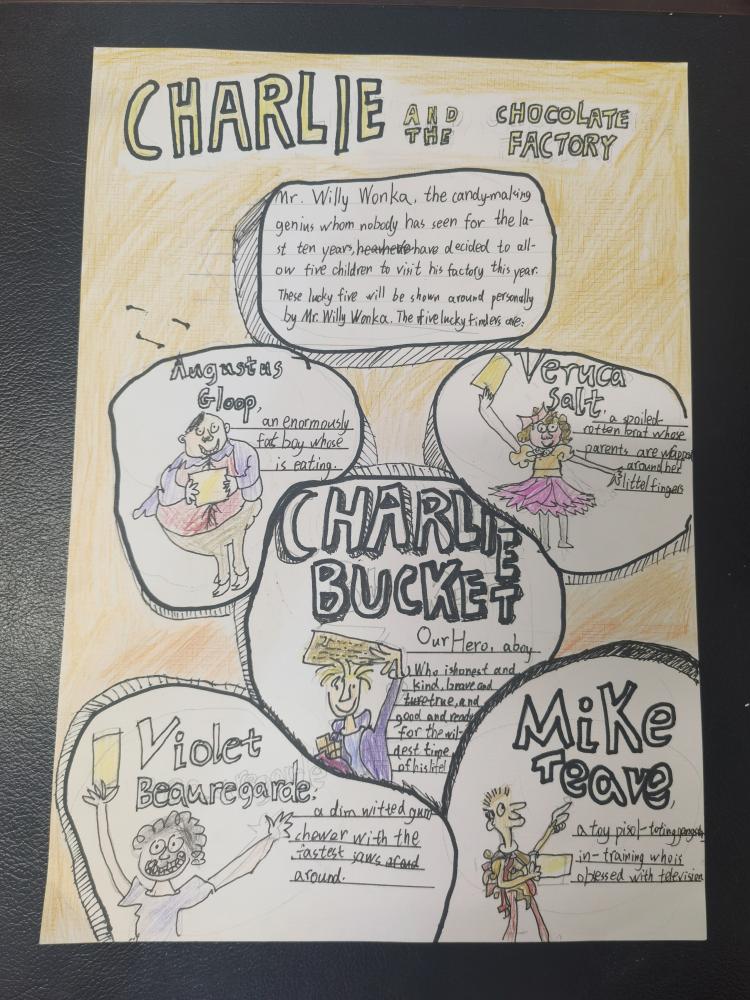 CHARLIE AND THE CHOCOLATE FACTORY
Mr. Willy Wonka, the candy-making
genius whom nobody has seen for the la-
st ten years, have decided to all-
ow five children to visit his factory this year.
These lucky five will be shown around personally
by Mr. Willy Wonka. The five lucky finders are:
Augustus
Gloop,
an enormously
fat boy whose
is eating.
Veruca
Salt,
a spoiled-
rotten brat whose
parents are wrapped
around her
littel fingers
CHARLIE
BUCKET
Our Hero, a boy
Who is honest and
kind, brave and
true, and
good and ready
for the wil-
dest time
of his life!
Violet
Beauregarde:
a dim witted gum
chewer with the
fastest jaws
around.
Mike
Teave,
a toy pisol-toting gangster
in-training who is
obessed with television